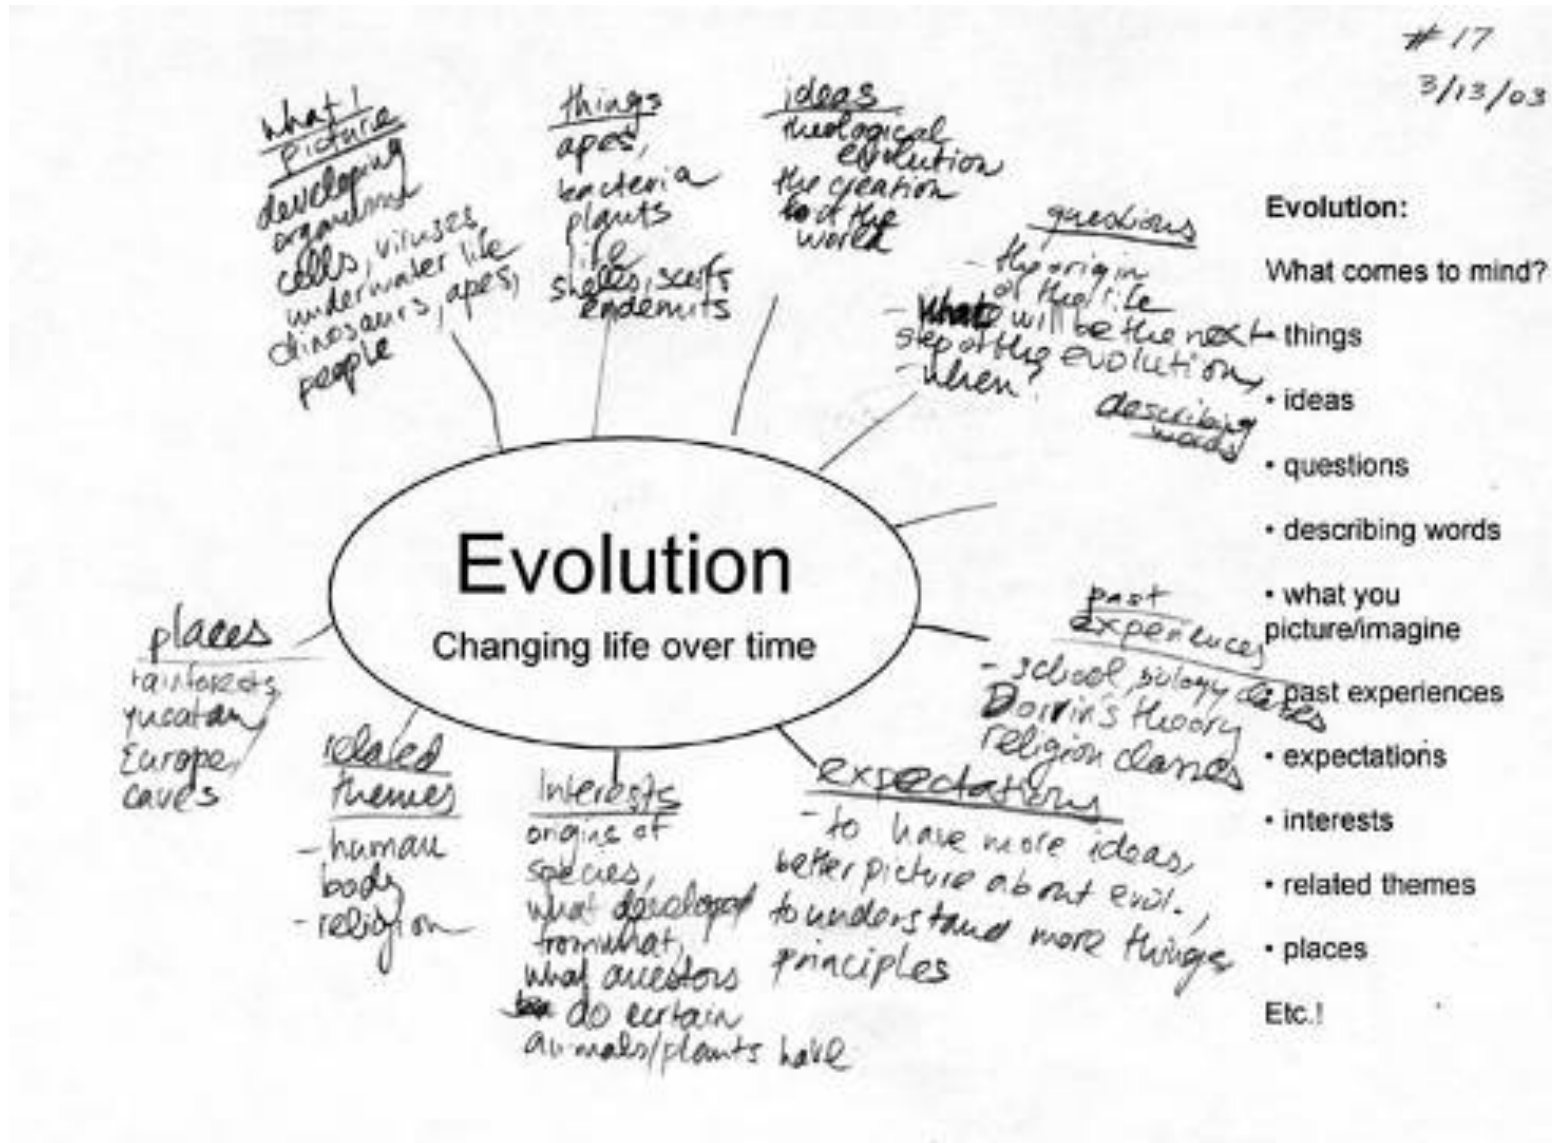 #17
3/13/03
what I
picture
developing
organisms
cells, viruses,
underwater life
dinosaurs, apes,
people
things
apes,
bacteria
plants
life
shells, scurfs
ideas
theological
evolution
the creation
of the
world
questions
- the origin
of the life
- what will be the next
step of the evolution,
- when?
describing
words
Evolution
Changing life over time
places
rainforests,
Yucatan,
Europe,
caves
related
themes
- human
body
- religion
Interests
origins of
species,
what developed
from what,
what ancestors
do certain
animals/plants have
expectations
- to have more ideas,
better picture about evol.,
to understand more things,
principles
past
experiences
- school, biology classes
Darvin's theory
religion classes
Evolution:
What comes to mind?
• things
• ideas
• questions
• describing words
• what you
picture/imagine
• past experiences
• expectations
• interests
• related themes
• places
Etc.!